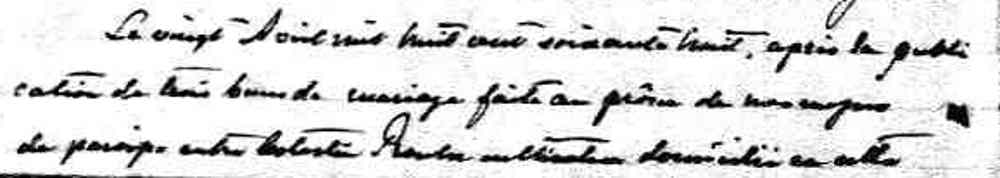 Le vingt Avril mil huit cent soixante huit, après la publi
cation de trois bans de mariage faite au prône de nos messes
de paroisse entre Calixte cultivateur domicilié en cette